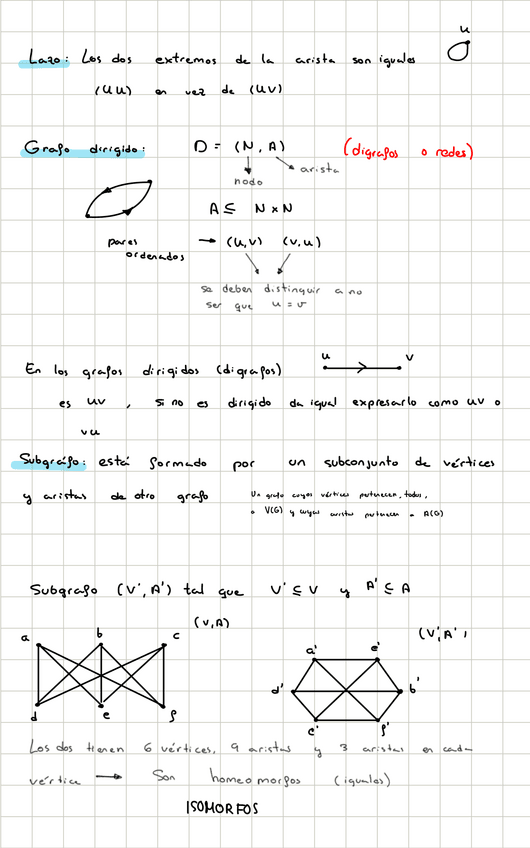 u
Lazo: Los dos extremos de la arista son iguales
(uu) en vez de (uv)
Grafo dirigido: D = (N, A) (digrafos o redes)
nodo arista
A ⊆ N × N
pares ordenados → (u,v) (v,u)
se deben distinguir a no
ser que u = v
u v
En los grafos dirigidos (digrafos)
es uv , si no es dirigido da igual expresarlo como uv o
vu
Subgráfo: está formado por un subconjunto de vértices
y aristas de otro grafo
Un grafo cuyos vértices pertenecen, todos,
a V(G) y cuyas aristas pertenecen a A(G)
Subgrafo (V', A') tal que V' ⊆ V y A' ⊆ A
(V, A) (V', A')
a b c
d e f
a' e'
d' b'
c' f'
Los dos tienen 6 vértices, 9 aristas y 3 aristas en cada
vértice → Son homeomorfos (iguales)
ISOMORFOS